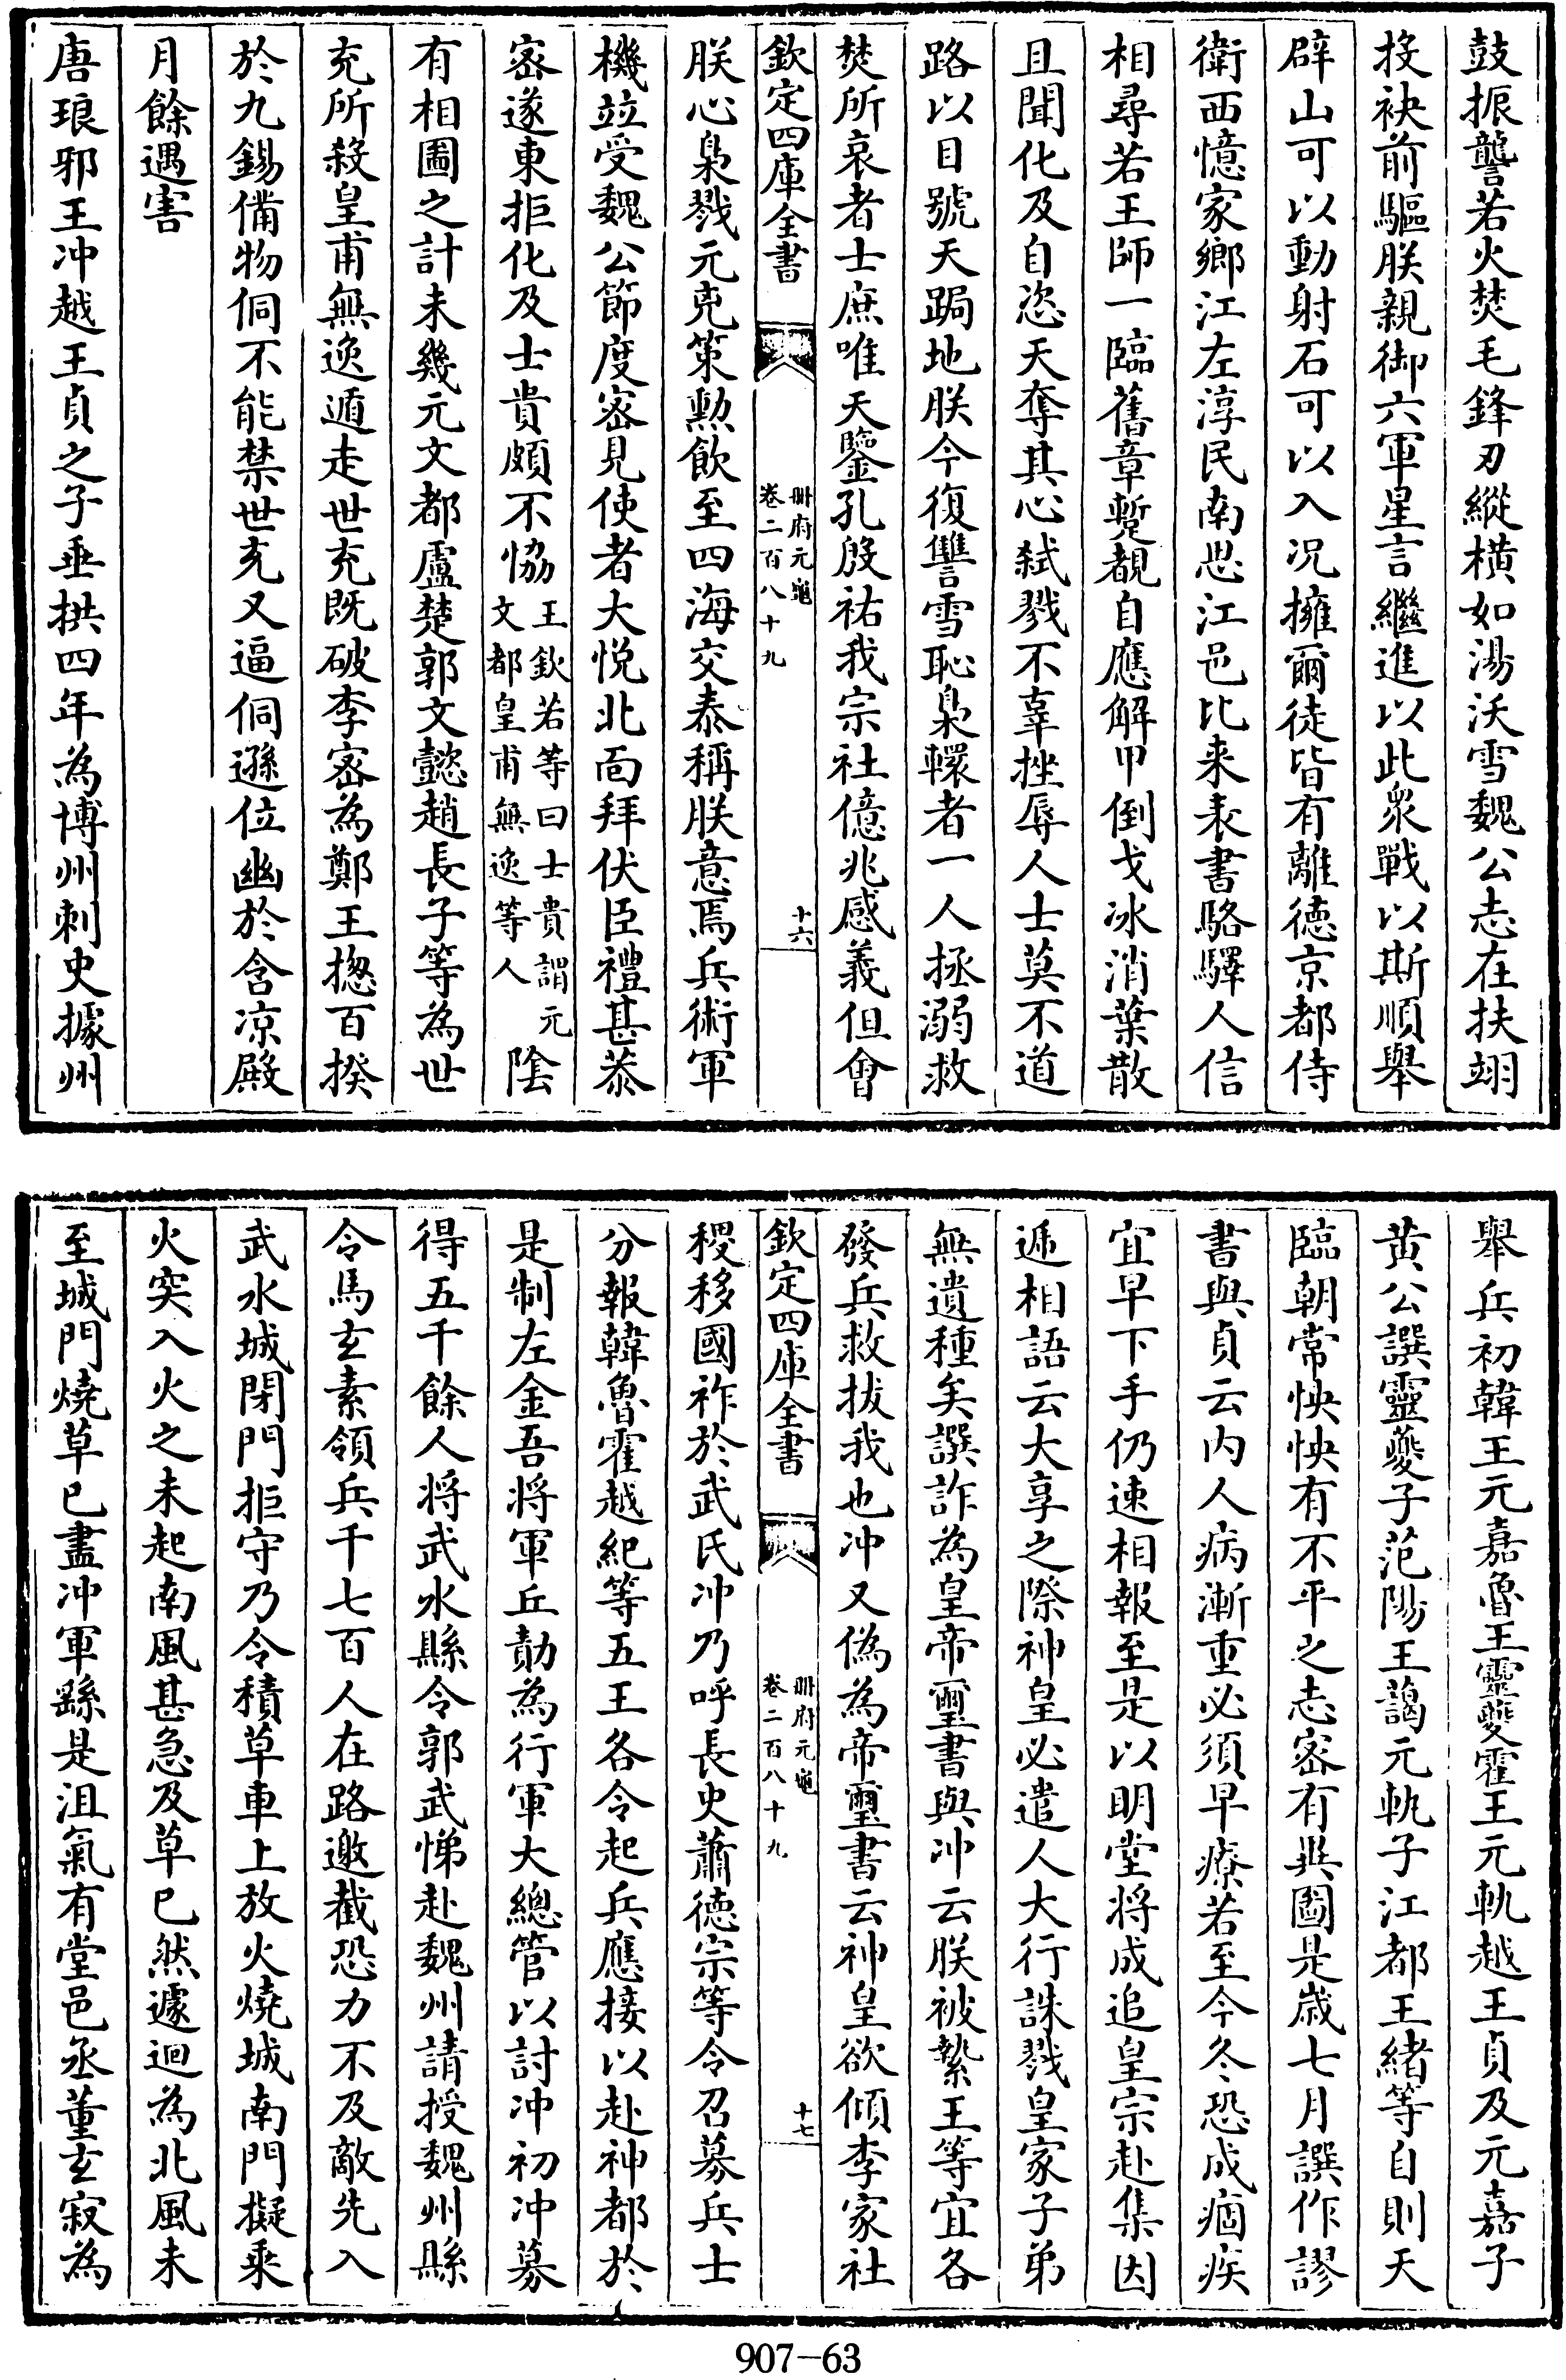 鼓振讋若火焚毛鋒刃縱橫如湯沃雪魏公志在扶翊
投袂前驅朕親御六軍星言繼進以此衆戰以斯順舉
辟山可以動射石可以入况擁爾徒皆有離德京都侍
衛西憶家鄉江左淳民南思江邑比来表書駱驛人信
相尋若王師一臨舊章暫覩自應解甲倒戈冰消葉散
且聞化及自恣天奪其心弑戮不辜挫辱人士莫不道
路以目號天跼地朕今復讐雪恥梟轘者一人拯溺救
焚所哀者士庶唯天鑒孔殷祐我宗社億兆感義但會
欽定四庫全書
冊府元龜
卷二百八十九
十六
朕心梟戮元克策勲飲至四海交泰稱朕意焉兵術軍
機竝受魏公節度宻見使者大悅北面拜伏臣禮甚恭
宻遂東拒化及士貴頗不恊王欽若等曰士貴謂元文都皇甫無逸等人隂
有相圖之計未幾元文都盧楚郭文懿趙長子等為世
充所殺皇甫無逸遁走世充既破李宻為鄭王揔百揆
於九錫備物侗不能禁世充又逼侗遜位幽於含凉殿
月餘遇害
唐琅邪王冲越王貞之子垂拱四年為博州刺史據州
舉兵初韓王元嘉魯王靈夔霍王元軌越王貞及元嘉子
黄公譔靈夔子范陽王藹元軌子江都王緒等自則天
臨朝常怏怏有不平之志宻有興圖是歲七月譔作謬
書與貞云内人病漸重必須早療若至今冬恐成痼疾
宜早下手仍速相報至是以明堂将成追皇宗赴集因
遞相語云大享之際神皇必遣人大行誅戮皇家子弟
無遺種矣譔詐為皇帝璽書與冲云朕被縶王等宜各
發兵救拔我也冲又偽為帝璽書云神皇欲傾李家社
欽定四庫全書
冊府元龜
卷二百八十九
十七
稷移國祚於武氏冲乃呼長史蕭徳宗等令召募兵士
分報韓魯霍越紀等五王各令起兵應接以赴神都於
是制左金吾将軍丘勣為行軍大總管以討冲初冲募
得五千餘人将武水縣令郭武悌赴魏州請授魏州縣
令馬玄素領兵千七百人在路邀截恐力不及敵先入
武水城閉門拒守乃令積草車上放火燒城南門擬乘
火突入火之未起南風甚急及草已然遽迴為北風未
至城門燒草已盡冲軍繇是沮氣有堂邑丞董玄寂為
907-63